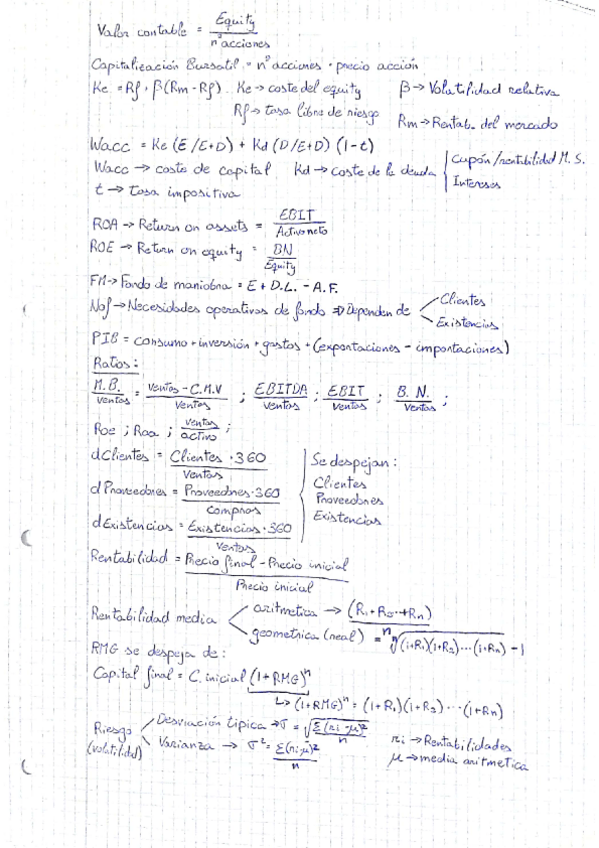 Valor contable = Equity / nº acciones
Capitalización Bursatil = nº acciones · precio acción
Ke = Rf + β(Rm - Rf) Ke → coste del equity β → Volatilidad relativa
Rf → tasa libre de riesgo Rm → Rentab. del mercado
Wacc = Ke (E/E+D) + Kd (D/E+D) (1-t)
Wacc → costo de capital Kd → Coste de la deuda Cupón/rentabilidad M.S.
t → Tasa impositiva Intereses
ROA → Return on assets = EBIT / Activo neto
ROE → Return on equity = BN / Equity
FM → Fondo de maniobra = E + D.L. - A.F.
Nof → Necesidades operativas de fondo ⇒ Dependen de Clientes
Existencias
PIB = consumo + inversión + gastos + (exportaciones - importaciones)
Ratios:
M.B. / ventas = ventas - C.M.V / ventas ; EBITDA / ventas ; EBIT / ventas ; B.N. / ventas ;
Roe ; Roa ; ventas / activo ;
dClientes = Clientes · 360 / Ventas Se despejan:
Clientes
dProveedores = Proveedores · 360 / compras Proveedores
dExistencias = Existencias · 360 / Ventas Existencias
Rentabilidad = Precio final - Precio inicial / Precio inicial
Rentabilidad media aritmetica → (R₁+R₂...+Rn) / n
geometrica (real) = ⁿ√(1+R₁)(1+R₂)...(1+Rn) - 1
RMG se despeja de:
Capital final = C. inicial (1+RMG)ⁿ
↳ (1+RMG)ⁿ = (1+R₁)(1+R₂)...(1+Rn)
Riesgo (volatilidad) Desviación típica → σ = √Σ(ri-μ)² / n
Varianza → σ² = Σ(ri-μ)² / n ri → Rentabilidades
μ → media aritmetica